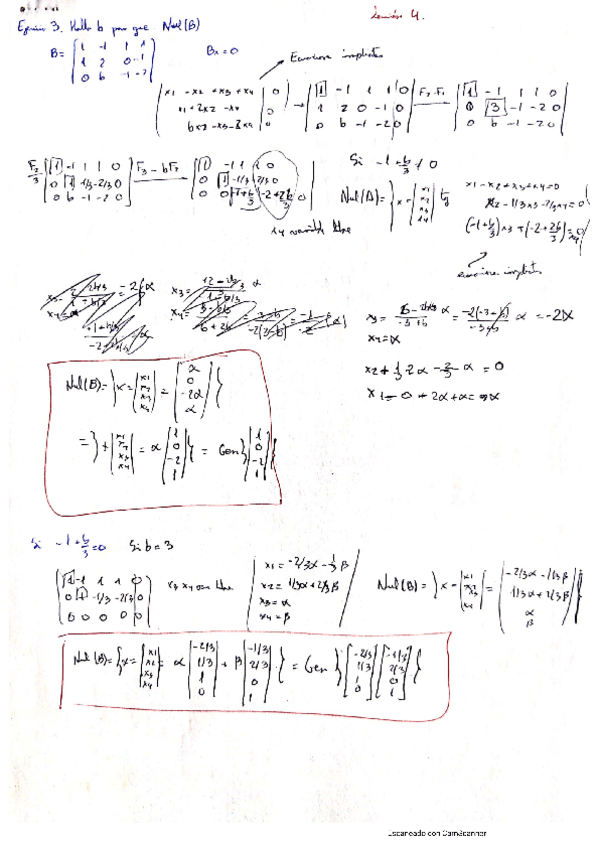 Sesión 4.
Ejercicio 3. Halla b para que Nul(B)
B = | 1 -1 1 1 |
| 1 2 0 -1 |
| 0 b -1 -2 |
Bx = 0
Ecuaciones implícitas
x1 - x2 + x3 + x4 | 0
x1 + 2x2 - x4 | 0
bx2 - x3 - 2x4 | 0
→ | 1 -1 1 1 0 |
| 1 2 0 -1 0 |
| 0 b -1 -2 0 |
F2 - F1
| 1 -1 1 1 0 |
| 0 3 -1 -2 0 |
| 0 b -1 -2 0 |
F2/3
| 1 -1 1 1 0 |
| 0 1 -1/3 -2/3 0 |
| 0 b -1 -2 0 |
F3 - bF2
| 1 -1 1 1 0 |
| 0 1 -1/3 -2/3 0 |
| 0 0 -1+b/3 -2+2b/3 0 |
x4 variable libre
Si -1+b/3 ≠ 0
Nul(B) = { x = | x1 x2 x3 x4 | tq
x1 - x2 + x3 + x4 = 0
x2 - 1/3 x3 - 2/3 x4 = 0
(-1+b/3) x3 + (-2+2b/3) x4 = 0
ecuaciones implícitas
α = -2α
x4 = α
x2 + 1/3 2α - 2/3 α = 0
x1 - 0 + 2α + α = α
Nul(B) = { x = | x1 x2 x3 x4 | = | α 0 -2α α | }
= { x | x1 x2 x3 x4 | = α | 1 0 -2 1 | } = Gen { | 1 0 -2 1 | }
Si -1+b/3 = 0 Si b = 3
| 1 -1 1 1 0 |
| 0 1 -1/3 -2/3 0 |
| 0 0 0 0 0 |
x3 x4
x1 = -2/3 α - 1/3 β
x2 = 1/3 α + 2/3 β
x3 = α
x4 = β
Nul(B) = { x = | x1 x2 x3 x4 | = | -2/3α - 1/3β 1/3α + 2/3β α β | }
Nul(B) = { x = | x1 x2 x3 x4 | = α | -2/3 1/3 1 0 | + β | -1/3 2/3 0 1 | } = Gen { | -2/3 1/3 1 0 | | -1/3 2/3 0 1 | }
Escaneado con CamScanner